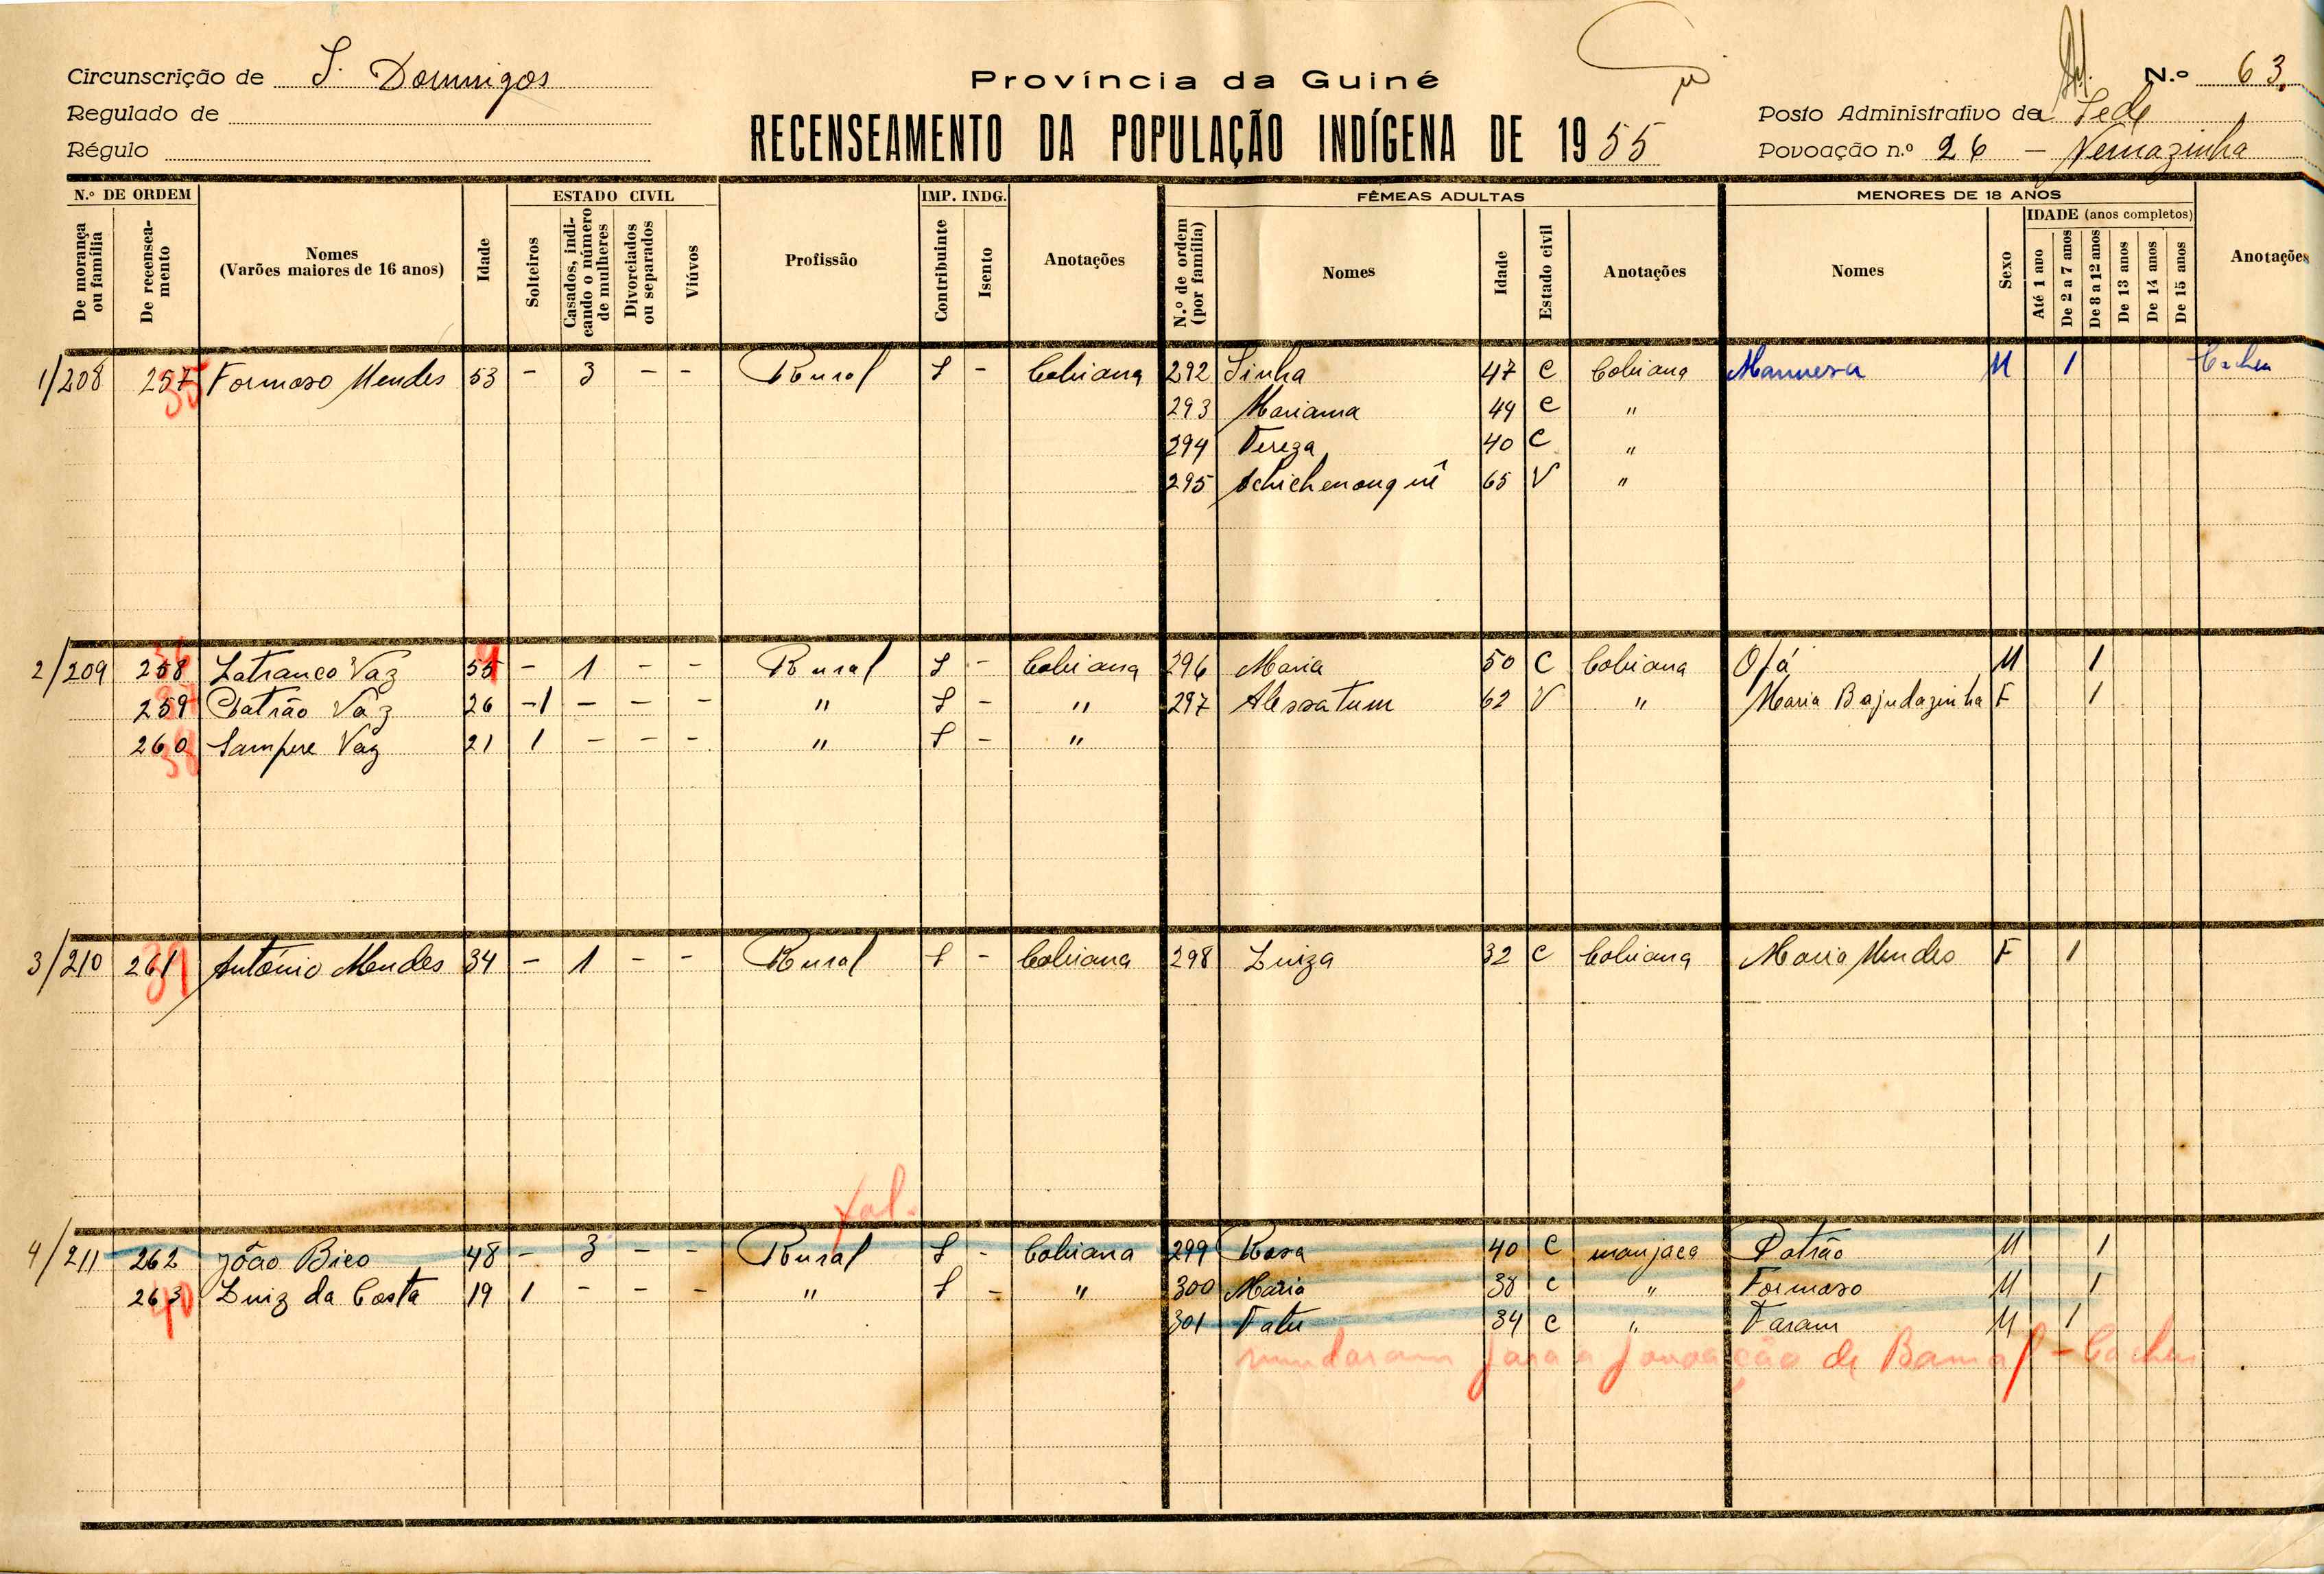 Circunscrição de S. Domingos
Regulado de
Régulo
Província da Guiné
RECENSEAMENTO DA POPULAÇÃO INDÍGENA DE 1955
N.º 63
Posto Administrativo da Sede
Povoação n.º 26 — Nemazinha
N.º DE ORDEM
De morança ou família
De recensea-mento
Nomes
(Varões maiores de 16 anos)
Idade
ESTADO CIVIL
Solteiros
Casados, indi-cando o número de mulheres
Divorciados ou separados
Viúvos
Profissão
IMP. INDG.
Contribuinte
Isento
Anotações
FÊMEAS ADULTAS
N.º de ordem (por família)
Nomes
Idade
Estado civil
Anotações
MENORES DE 18 ANOS
Nomes
Sexo
IDADE (anos completos)
Até 1 ano
De 2 a 7 anos
De 8 a 12 anos
De 13 anos
De 14 anos
De 15 anos
Anotações
1/208 257 35 Formoso Mendes 53 - 3 - - Rural S - Cobiana 292 Sinha 47 C Cobiana M 1 Cacheu
293 Mariama 49 C "
294 Tereza 40 C "
295 65 V "
2/209 258 36 Latranco Vaz 55 - 1 - - Rural S - Cobiana 296 Maria 50 C Cobiana Ofá M 1
259 37 Patrão Vaz 26 -1 - - - " S - " 297 Alessatum 62 V " Maria Bajudazinha F 1
260 38 Sampere Vaz 21 1 - - - " S - "
3/210 261 39 António Mendes 34 - 1 - - Rural S - Cobiana 298 Luiza 32 C Cobiana Maria Mendes F 1
fal.
4/211 262 João Bico 48 - 3 - - Rural S - Cobiana 299 Rosa 40 C manjaca Patrão M 1
263 40 Luiz da Costa 19 1 - - - " S - " 300 Maria 38 C " Formoso M 1
301 Fatu 34 C " Faram M 1
mudaram para a povoação de - Cacheu